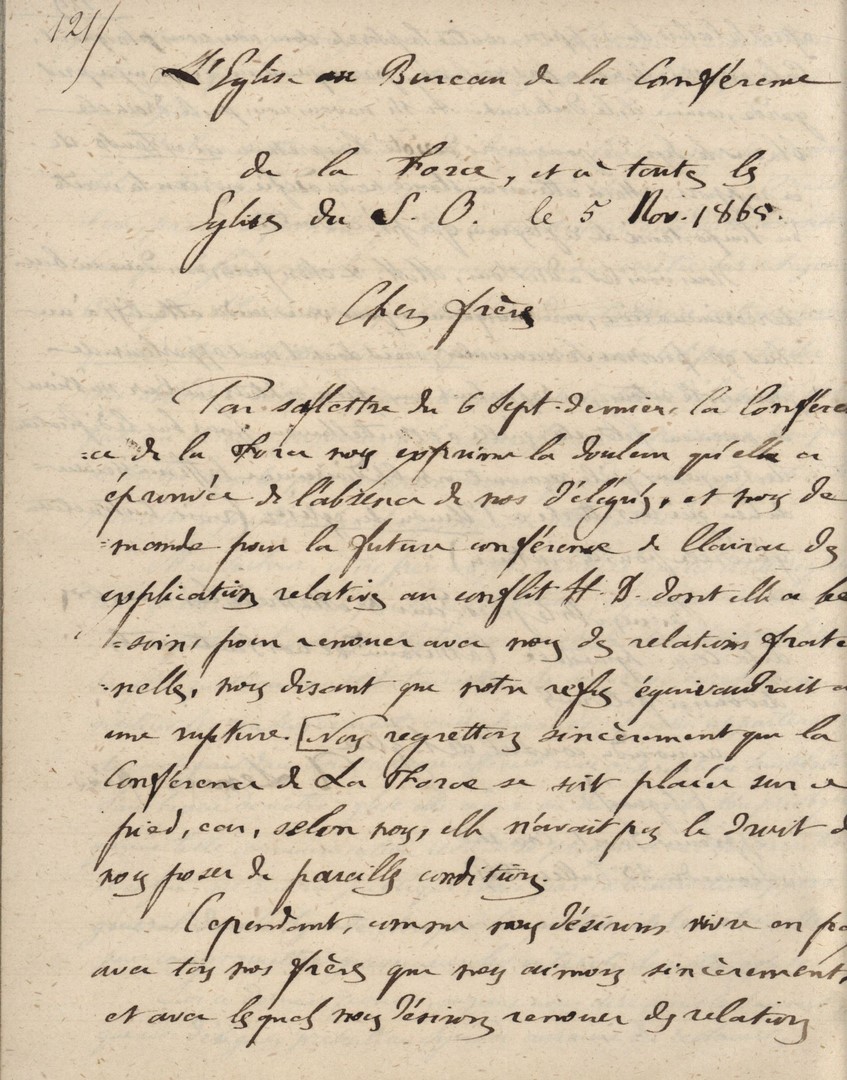 121/
L'Eglise au Bureau de la Conférence
de la Force, et à toutes les
Eglises du S. O. le 5 Nov. 1865.
Chers frères
Par sa lettre du 6 Sept. dernier, la Conféren
=ce de la Force nous exprime la douleur qu'elle a
éprouvée de l'absence de nos Délégués, et nous de
=mande pour la future conférence de Clairac des
explications relatives au conflit H. D. dont elle a be
=soin, pour renouer avec nous des relations frater
=nelles, nous disant que notre refus équivaudrait à
une rupture. [Nous regrettons sincèrement que la
Conférence de La Force se soit placée sur ce
pied, car, selon nous, elle n'avait pas le droit de
nous poser de pareilles conditions.
Cependant, comme nous désirons vivre en paix
avec tous nos frères que nous aimons sincèrement,
et avec lesquels nous désirons renouer des relations